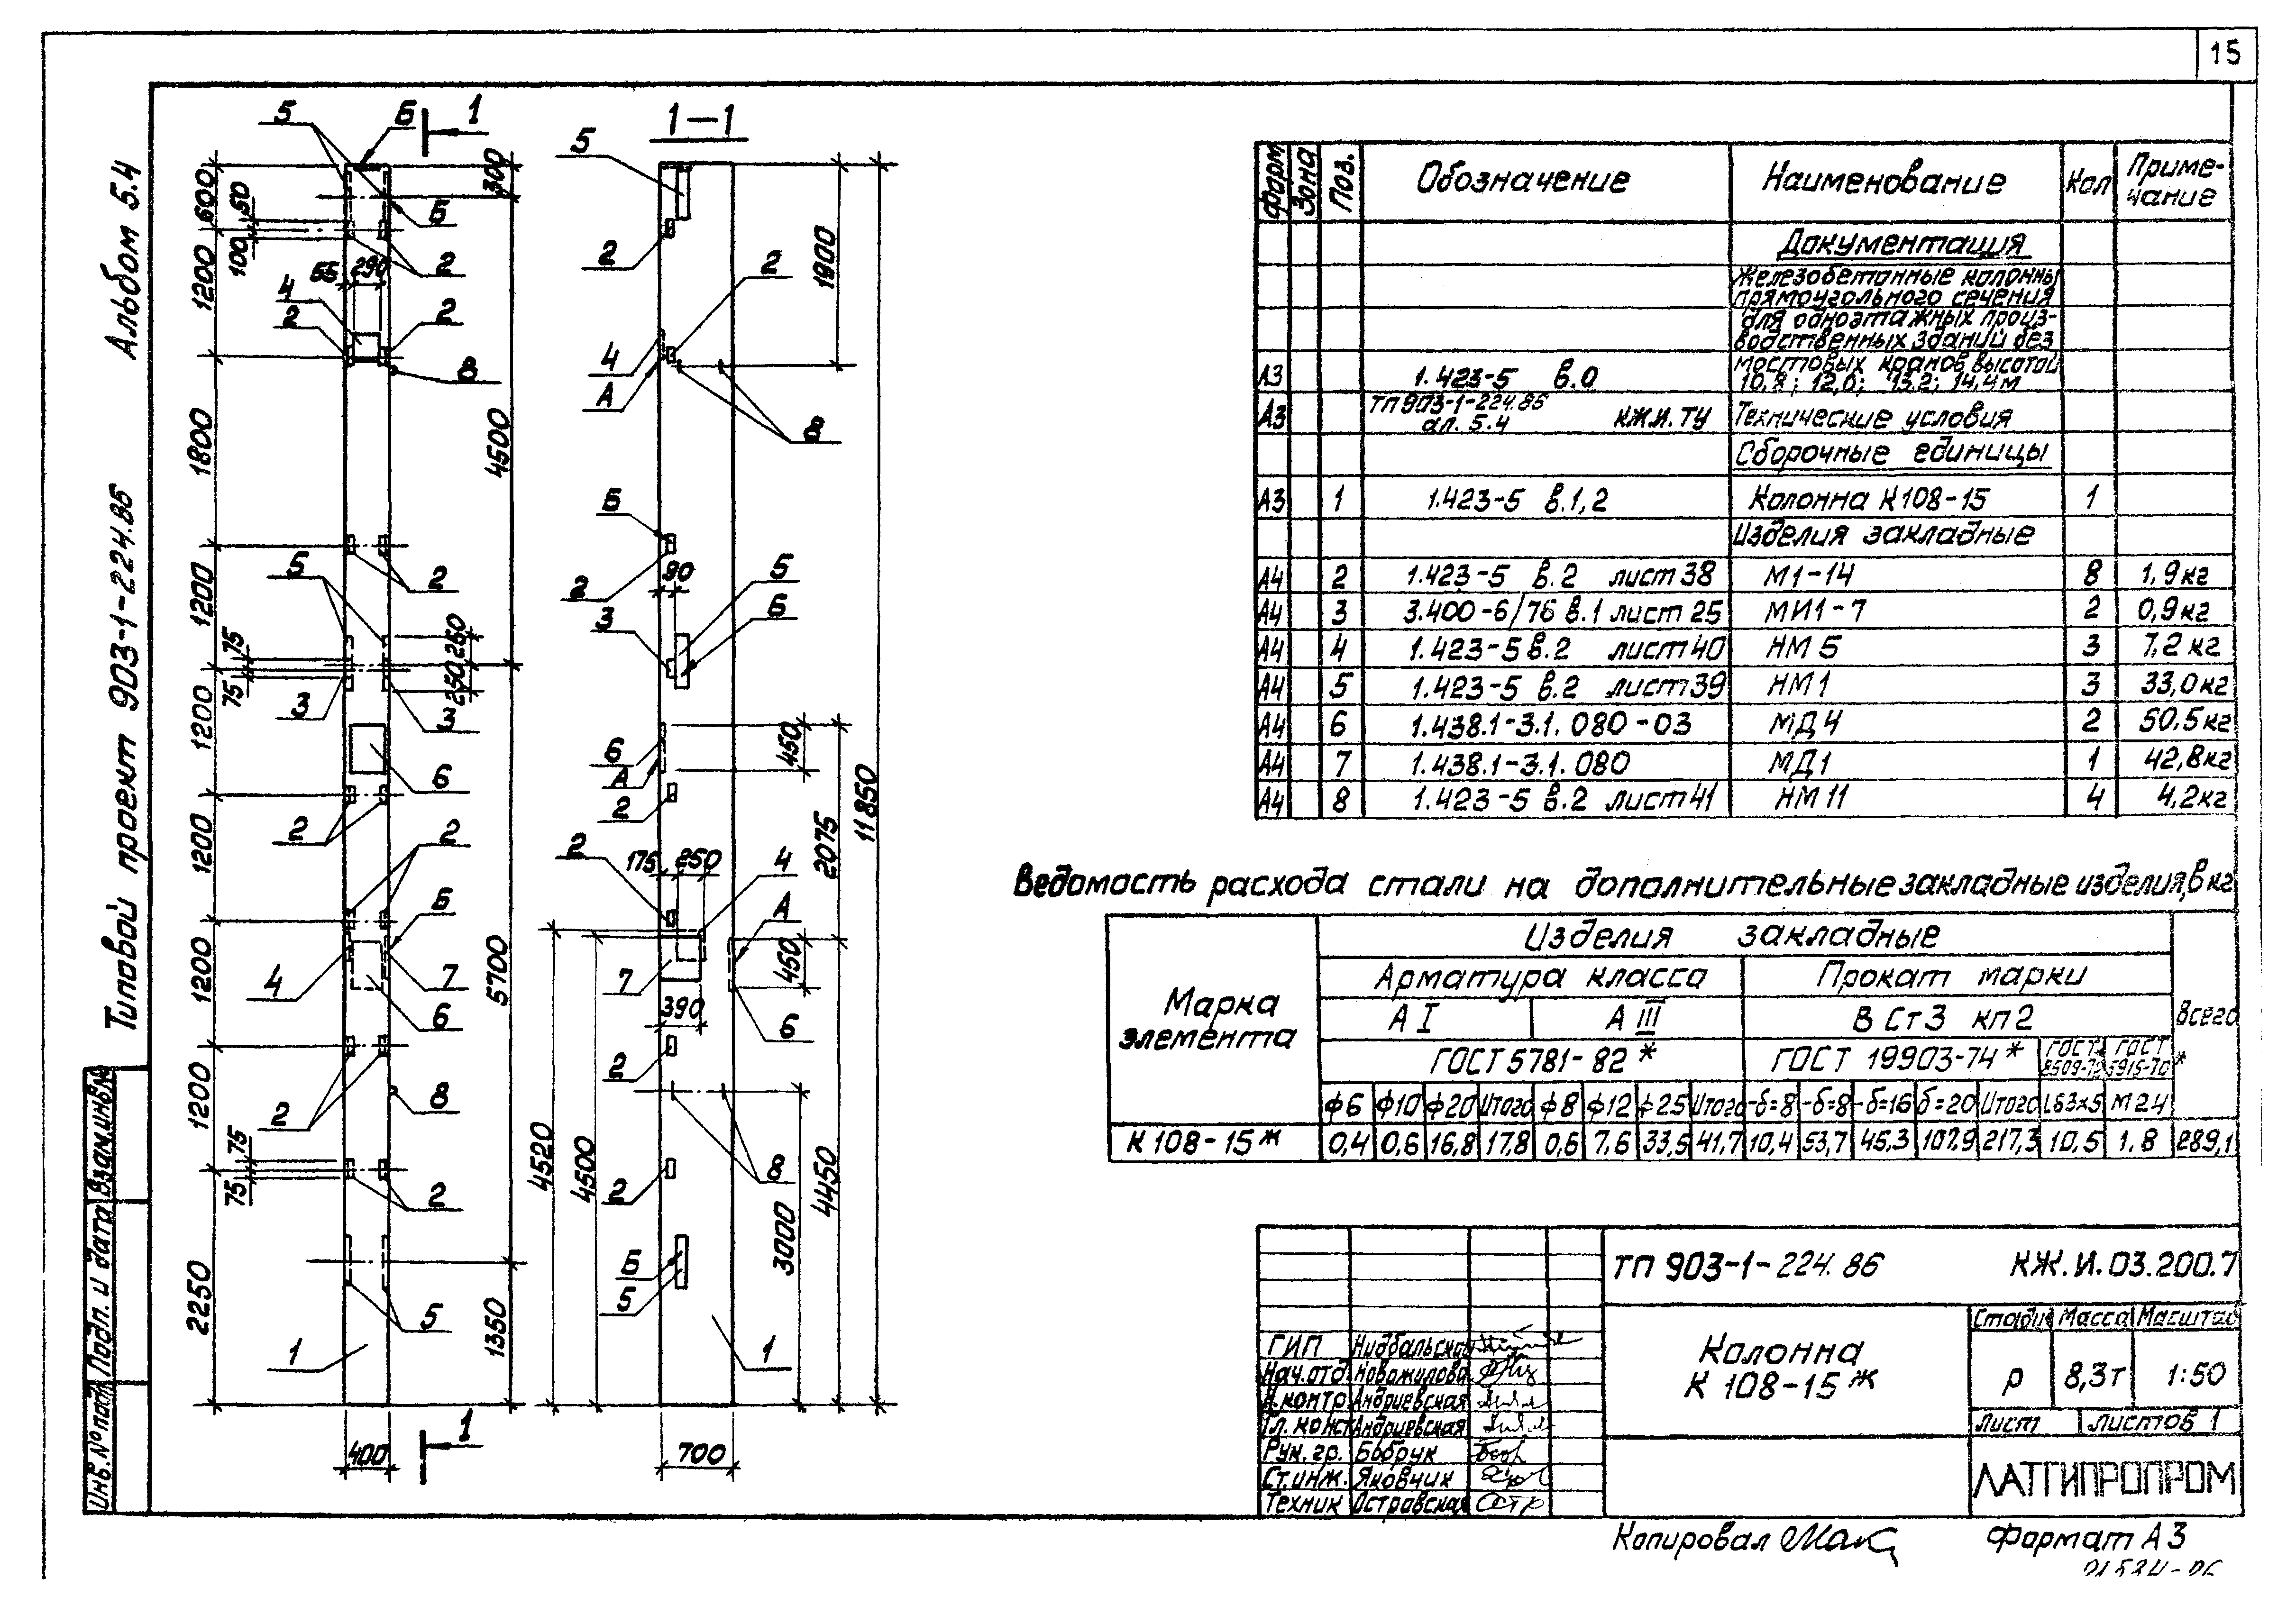 15
Альбом 5.4
Типовой проект 903-1-224.86
Взам.инв.№
Подп. и дата
Инв.№ подл.
1
1-1
5
Б
5
600
50
100
300
Б
2
2
1200
55
290
4
2
2
8
2
4
А
8
1800
1800
4500
11850
Б
2
5
2
1200
90
5
Б
3
75
75
250
250
3
3
1200
6
6
А
2
450
2075
2
2
1200
2
175
250
4
А
Б
4
7
6
1200
5700
7
390
450
6
2
2
8
8
1200
4520
4500
3000
4450
75
75
2
2
Б
5
5
2250
1350
1
1
1
400
700
Форм
Зона
Поз.
Обозначение
Наименование
Кол
Приме-
чание
Документация
Железобетонные колонны
прямоугольного сечения
для одноэтажных произ-
водственных зданий без
мостовых кранов высотой
А3 1.423-5 в.0 10,8; 12,0; 13,2; 14,4м
А3 ТП 903-1-224.86 ал. 5.4 КЖ.И.ТУ Технические условия
Сборочные единицы
А3 1 1.423-5 в.1,2 Колонна К108-15 1
Изделия закладные
А4 2 1.423-5 в.2 лист 38 М1-14 8 1,9кг
А4 3 3.400-6/76 в.1 лист 25 МИ1-7 2 0,9кг
А4 4 1.423-5 в.2 лист 40 НМ5 3 7,2кг
А4 5 1.423-5 в.2 лист 39 НМ1 3 33,0кг
А4 6 1.438.1-3.1.080-03 МД4 2 50.5кг
А4 7 1.438.1-3.1.080 МД1 1 42,8кг
А4 8 1.423-5 в.2 лист 41 НМ11 4 4,2кг
Ведомость расхода стали на дополнительные закладные изделия, в кг
Марка
элемента
Изделия закладные
Арматура класса
Прокат марки
А I
А III
В Ст3 кп2
Всего
ГОСТ 5781-82*
ГОСТ 19903-74*
ГОСТ 8509-72
ГОСТ 5915-70*
ф6 ф10 ф20 Итого ф8 ф12 ф25 Итого -δ=8 -δ=8 -δ=16 δ=20 Итого L63x5 М24
К108-15ж 0,4 0,6 16,8 17,8 0,6 7,6 33,5 41,7 10,4 53,7 45,3 107,9 217,3 10,5 1,8 289,1
ТП 903-1-224.86 КЖ.И.03.200.7
Колонна
К 108-15ж
Стадия Масса Масштаб
Р 8,3т 1:50
Лист Листов 1
ЛАТГИПРОПРОМ
ГИП Нидбальский
Нач.отд. Новожилова
Н.контр. Андриевская
Гл. конст. Андриевская
Рук. гр. Бобрук
Ст.инж. Яковчик
Техник Островская
Копировал
Формат А3